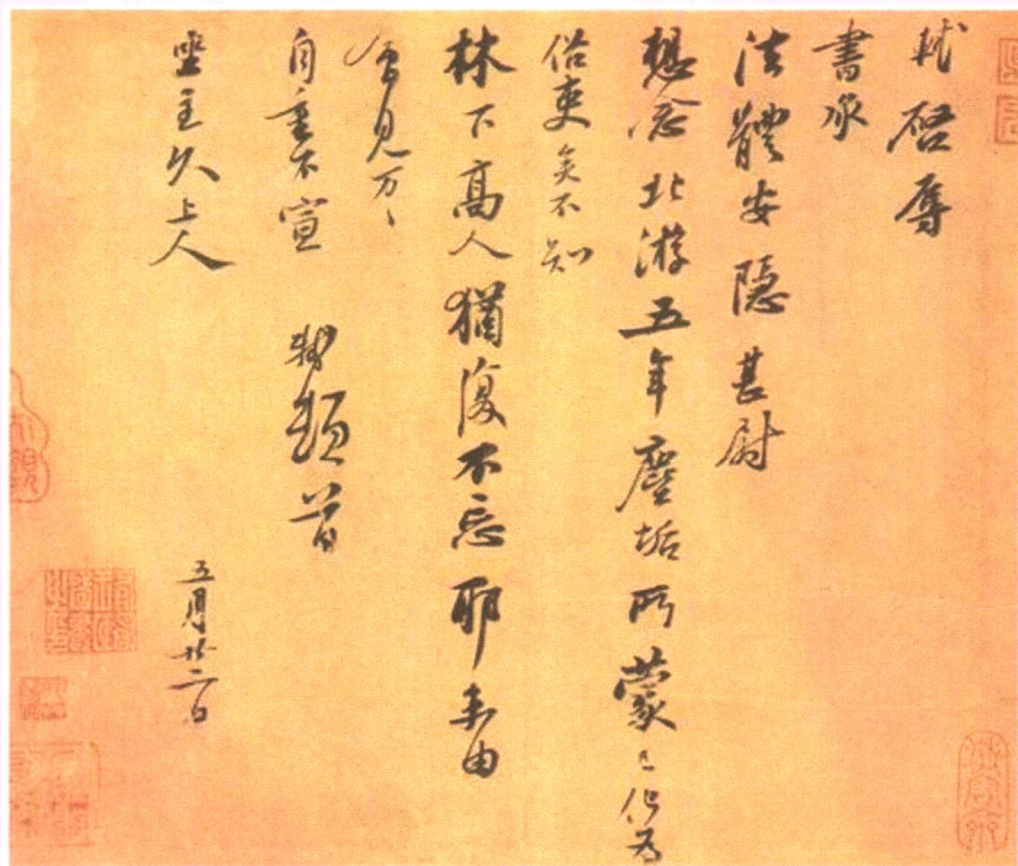 軾啓辱
書承
法體安隱甚尉
想念北游五年塵垢所蒙已化爲
俗吏矣不知
林下高人猶復不忘耶未由
會見万万
自重不宣 軾頓首
坐主久上人 五月廿二日